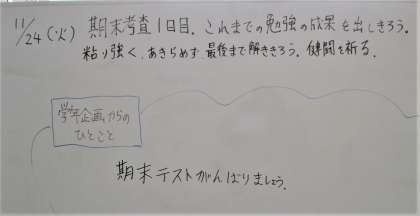 11/24(火) 期末考査1日目。これまでの勉強の成果を出しきろう。
粘り強く、あきらめず、最後まで解ききろう。健闘を祈る。
学年企画からの
ひとこと
期末テストがんばりましょう。